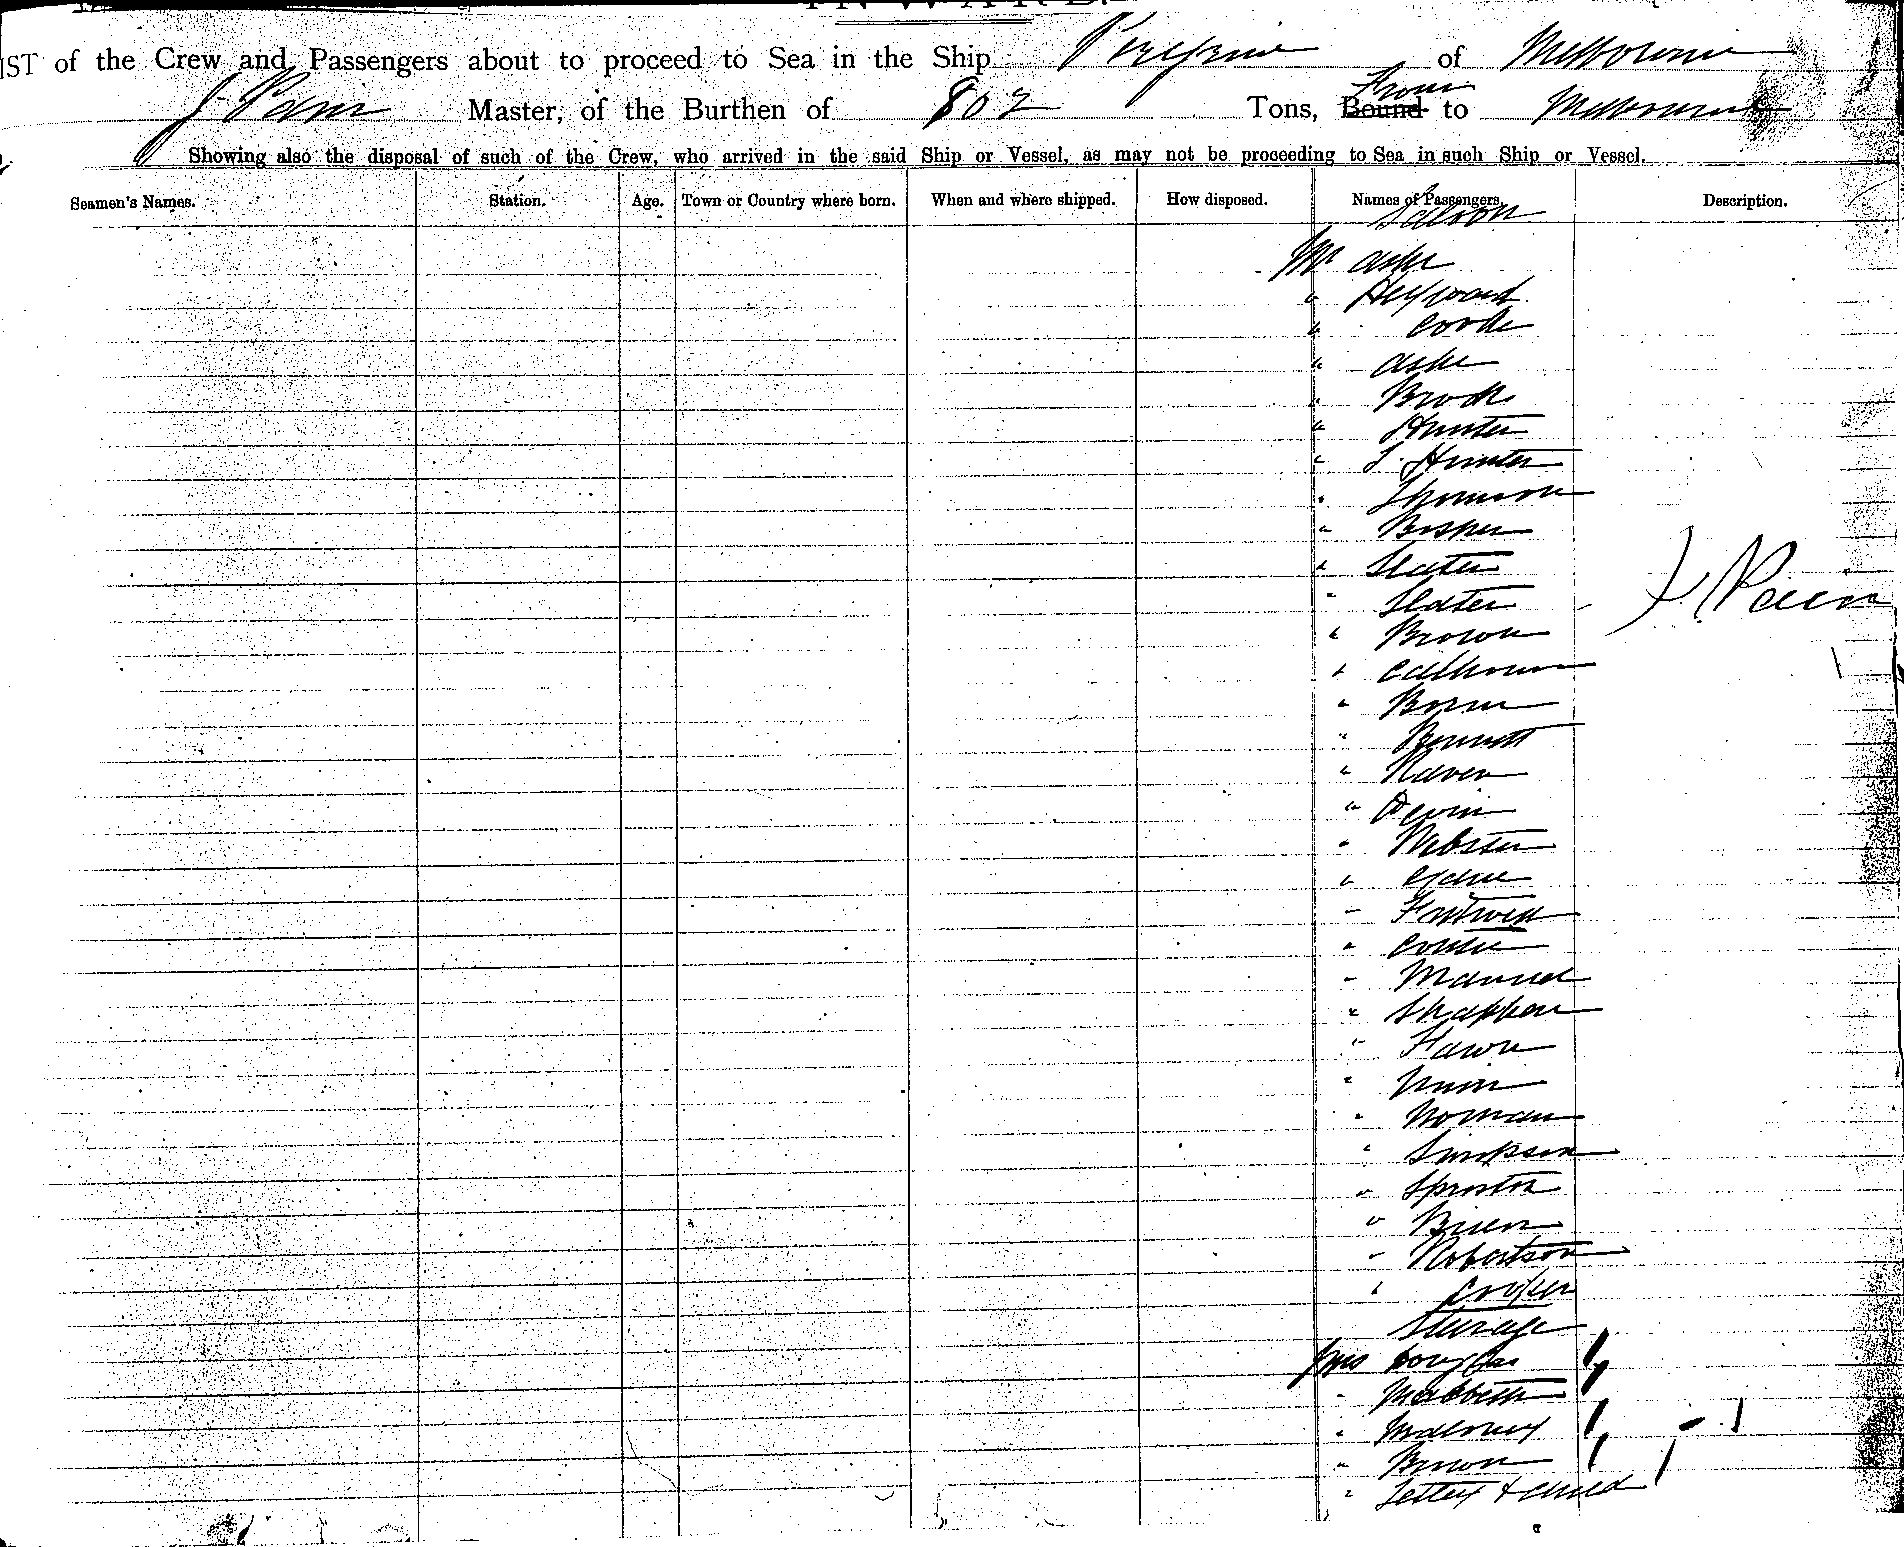 INWARD.
IST of the Crew and Passengers about to proceed to Sea in the Ship Peregrine of Melbourne
J Pain Master, of the Burthen of 802 Tons, Bound From to Melbourne
Showing also the disposal of such of the Crew, who arrived in the said Ship or Vessel, as may not be proceeding to Sea in such Ship or Vessel.
Seamen's Names. Station. Age. Town or Country where born. When and where shipped. How disposed. Names of Passengers. Description.
Saloon
Mr Ashe
" Heyward
" Coode
" Ashe
" Brooks
" Hunter
" J. Hunter
" Thomson
" Bosher
" Slater
" Slater
J. Pain
" Brown
" Calhoun
"
" Bennett
" Raven
" Devin
" Webster
"
"
"
" Manuel
"
" Fawn
"
" Norman
" Simpson
" Sproston
" Brien
" Robertson
" Cooper
Steerage
Mrs Douglas
" Macbeth
" Maloney
" Brown
" Settey & child